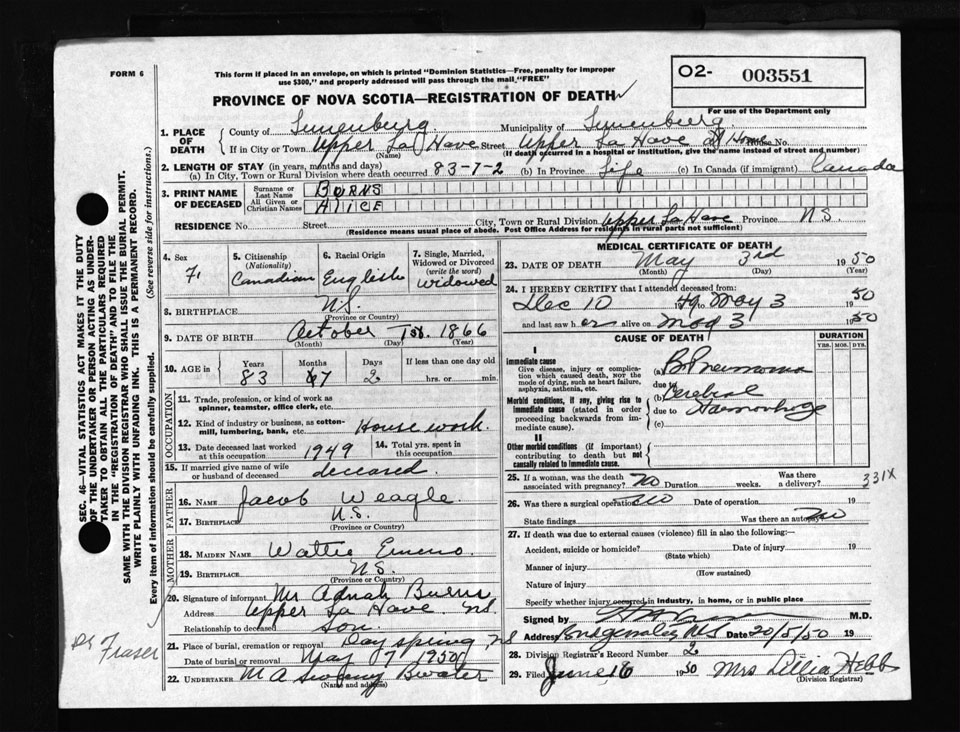 FORM 6
This form if placed in an envelope, on which is printed "Dominion Statistics—Free, penalty for improper
use $300," and properly addressed will pass through the mail "FREE"
02- 003551
For use of the Department only
PROVINCE OF NOVA SCOTIA—REGISTRATION OF DEATH
1. PLACE OF DEATH
County of Lunenburg Municipality of Lunenburg
If in City or Town Upper La Have Street Upper La Have at Home House No.
(Name) (If death occurred in a hospital or institution, give the name instead of street and number)
2. LENGTH OF STAY (in years, months and days)
(a) In City, Town or Rural Division where death occurred 83-7-2 (b) In Province Life (c) In Canada (if immigrant) Canada
3. PRINT NAME OF DECEASED
Surname or Last Name BURNS
All Given or Christian Names ALICE
RESIDENCE No. Street City, Town or Rural Division Upper La Have Province N.S.
(Residence means usual place of abode. Post Office Address for residents in rural parts not sufficient)
4. Sex F.
5. Citizenship (Nationality) Canadian
6. Racial Origin English
7. Single, Married, Widowed or Divorced (write the word) widowed
8. BIRTHPLACE N.S.
(Province or Country)
9. DATE OF BIRTH October 1st. 1866
(Month) (Day) (Year)
10. AGE in Years Months Days If less than one day old
83 7 2 hrs. or min.
OCCUPATION
11. Trade, profession, or kind of work as
spinner, teamster, office clerk, etc.
12. Kind of industry or business, as cotton-
mill, lumbering, bank, etc. House work.
13. Date deceased last worked
at this occupation 1949
14. Total yrs. spent in
this occupation
15. If married give name of wife
or husband of deceased deceased.
FATHER
16. NAME Jacob Weagle.
17. BIRTHPLACE N.S.
(Province or Country)
MOTHER
18. MAIDEN NAME
19. BIRTHPLACE N.S.
(Province or Country)
20. Signature of informant Mr Adnah Burns
Address Upper La Have NS.
Relationship to deceased son.
21. Place of burial, cremation or removal Dayspring, NS
Date of burial or removal May 7 1950
22. UNDERTAKER M A Sweeny Bwater
(Name and address)
Dr Fraser
MEDICAL CERTIFICATE OF DEATH
23. DATE OF DEATH May 3rd 1950
(Month) (Day) (Year)
24. I HEREBY CERTIFY that I attended deceased from:
Dec 10 1949 to May 3 1950
and last saw her alive on May 3 1950
CAUSE OF DEATH DURATION
YRS. MOS. DYS.
I
Immediate cause
Give disease, injury or complica-
tion which caused death, not the
mode of dying, such as heart failure,
asphyxia, asthenia, etc.
(a) Br Pneumonia
due to
Morbid conditions, if any, giving rise to
immediate cause (stated in order
proceeding backwards from im-
mediate cause).
(b) Cerebral
due to Haemorrhage
(c)
II
Other morbid conditions (if important)
contributing to death but not
causally related to immediate cause.
25. If a woman, was the death
associated with pregnancy? No Duration weeks. Was there
a delivery? 331X
26. Was there a surgical operation? No Date of operation 19
State findings Was there an autopsy? No
27. If death was due to external causes (violence) fill in also the following:—
Accident, suicide or homicide? Date of injury 19
(State which)
Manner of injury
(How sustained)
Nature of injury
Specify whether injury occurred in industry, in home, or in public place
Signed by M.D.
Address Date 20/5/50 19
28. Division Registrar's Record Number 2
29. Filed June 16 1950 Mrs Lillia Hebb
(Division Registrar)
SEC. 46—VITAL STATISTICS ACT MAKES IT THE DUTY
OF THE UNDERTAKER OR PERSON ACTING AS UNDER-
TAKER TO OBTAIN ALL THE PARTICULARS REQUIRED
IN THE "REGISTRATION OF DEATH" AND TO FILE THE
SAME WITH THE DIVISION REGISTRAR WHO SHALL ISSUE THE BURIAL PERMIT.
WRITE PLAINLY WITH UNFADING INK. THIS IS A PERMANENT RECORD.
Every item of information should be carefully supplied. (See reverse side for instructions.)